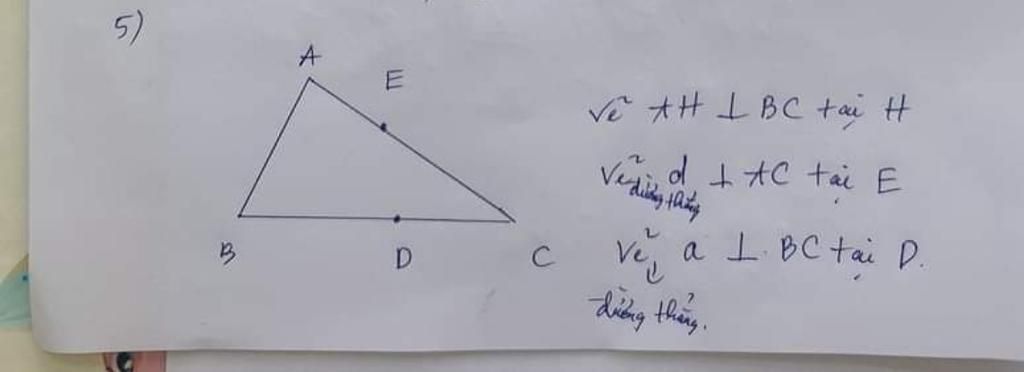 5)
A
E
B
D
C
Vẽ AH ⊥ BC tại H
Vẽ d ⊥ AC tại E
đường thẳng
Vẽ a ⊥ BC tại D.
đường thẳng.